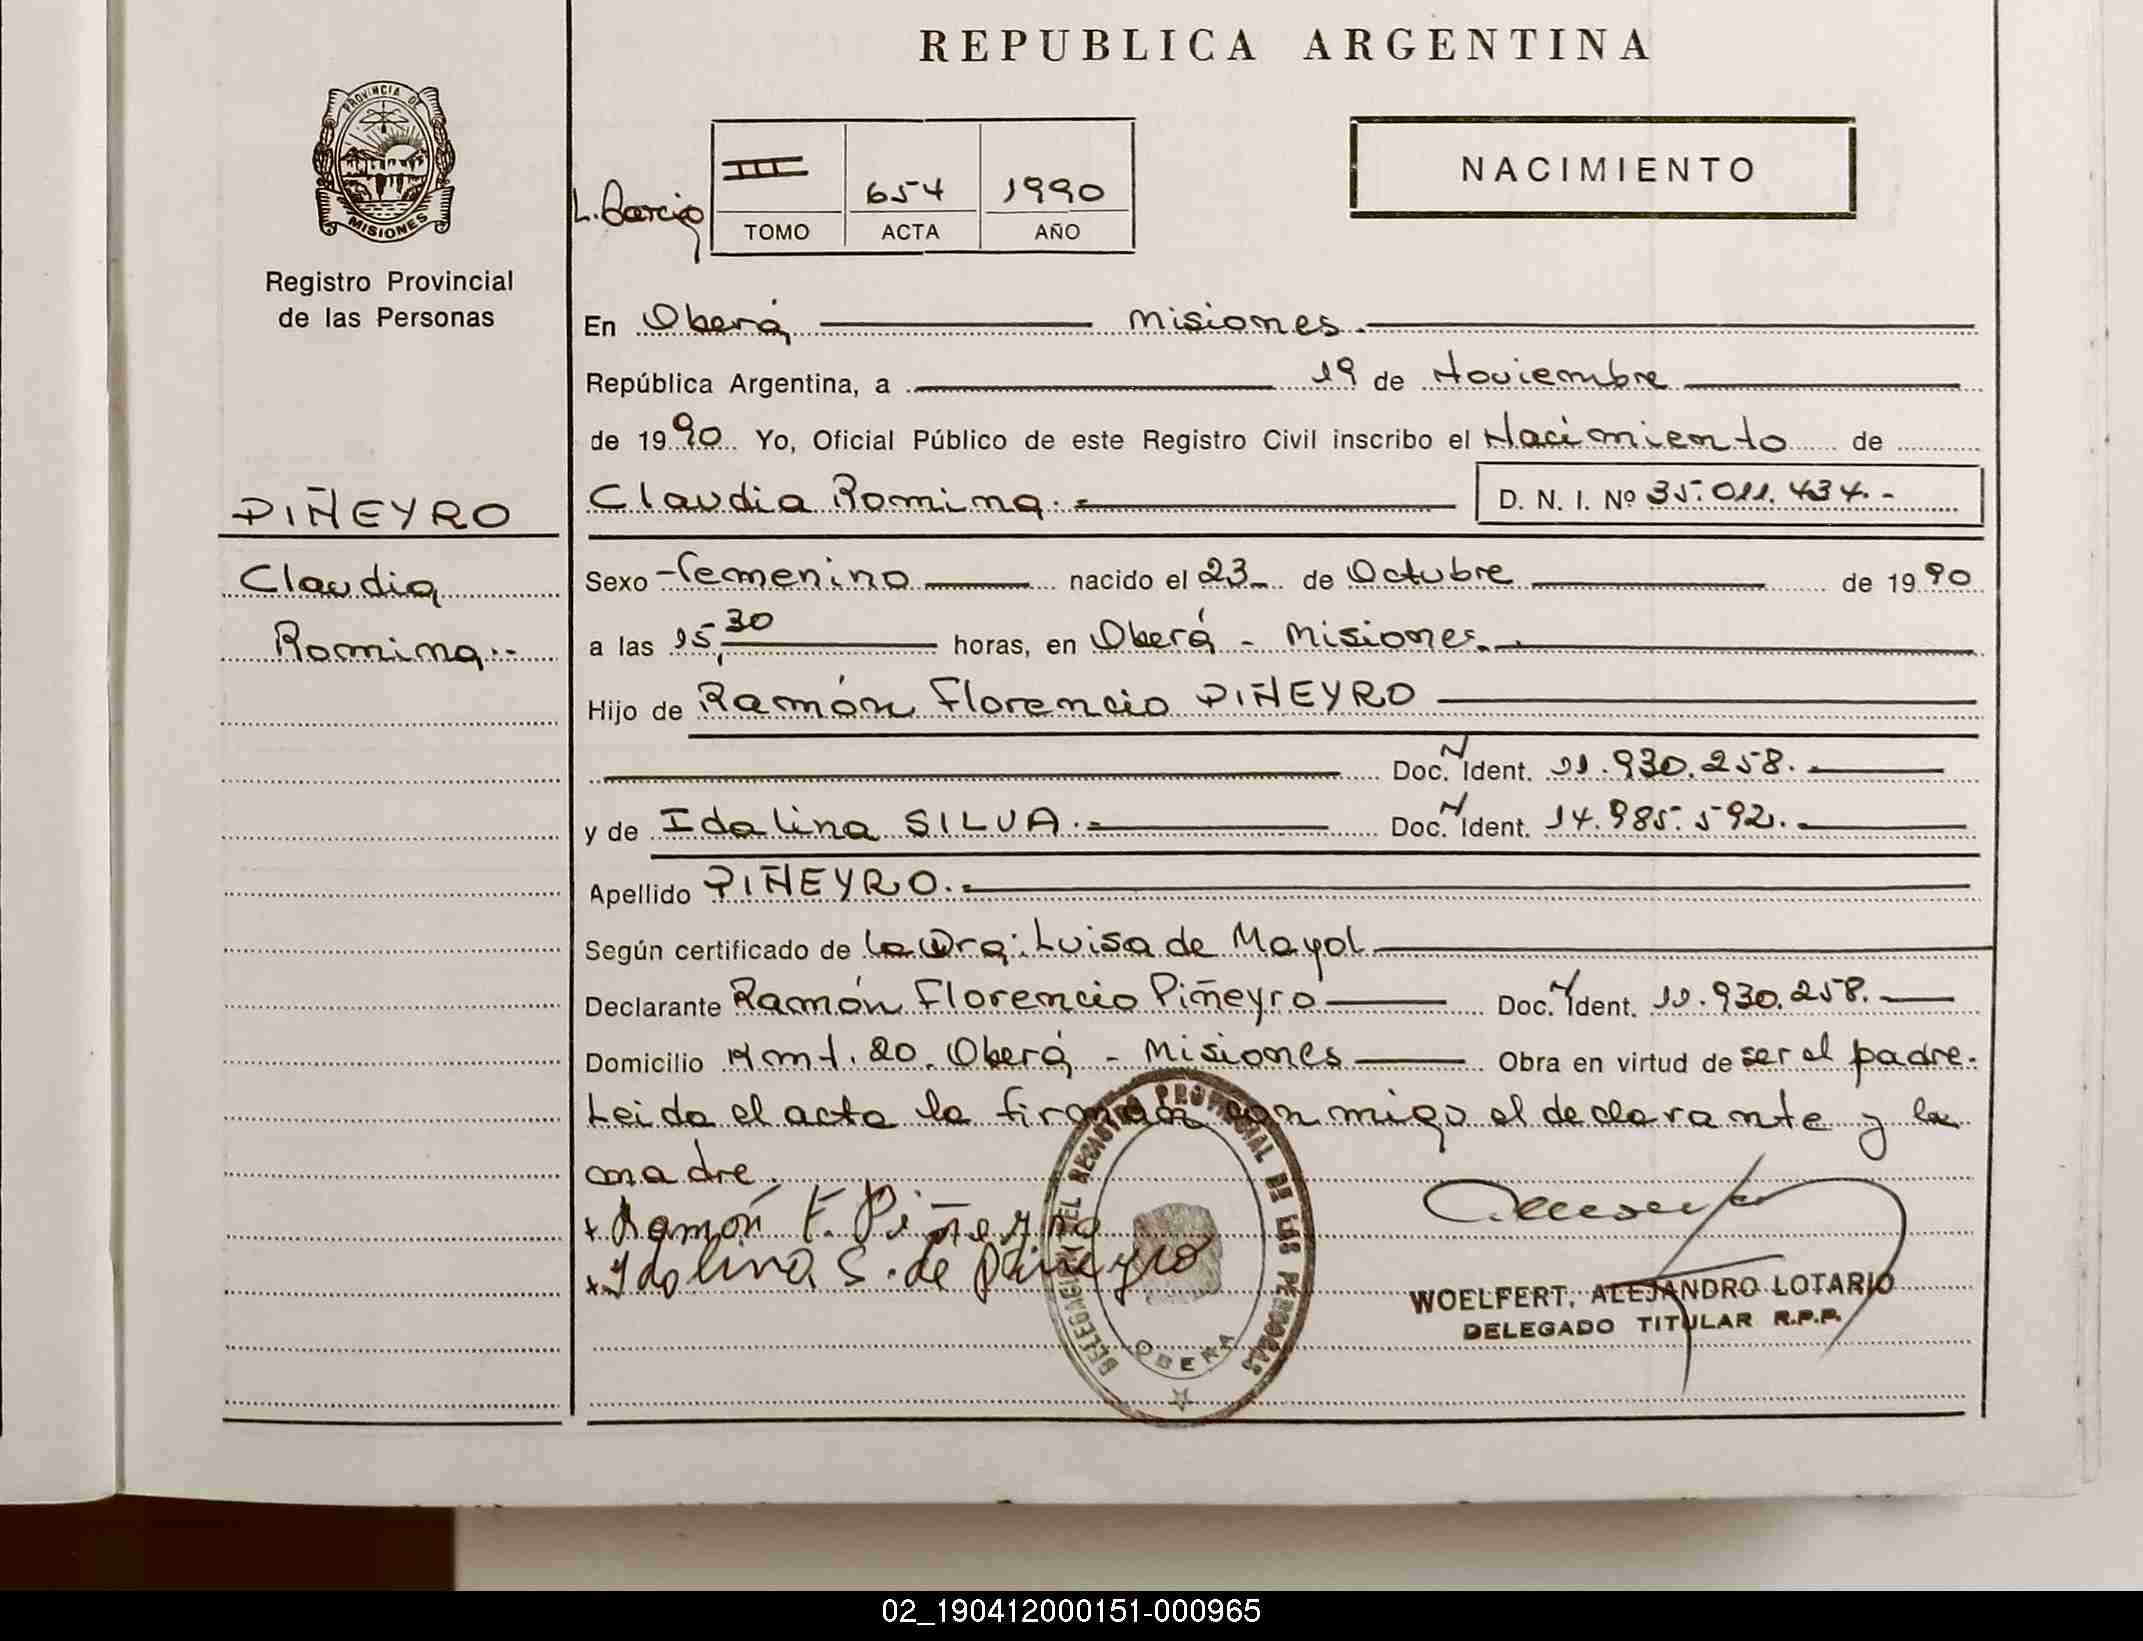 REPUBLICA ARGENTINA
PROVINCIA DE
MISIONES
Registro Provincial
de las Personas
III 654 1990
TOMO ACTA AÑO
NACIMIENTO
En Oberá Misiones.
República Argentina, a 19 de Noviembre
de 1990 Yo, Oficial Público de este Registro Civil inscribo el Nacimiento de
Claudia Romina.- D. N. I. Nº 35.011.434.-
PIÑEYRO
Claudia
Romina.-
Sexo Femenino nacido el 23 de Octubre de 1990
a las 15,30 horas, en Oberá - Misiones.
Hijo de Ramón Florencio PIÑEYRO
Doc. N Ident. 11.930.258.
y de Idalina SILVA.- Doc. N Ident. 14.985.592.
Apellido PIÑEYRO.-
Según certificado de la Dra: Luisa de Mayol
Declarante Ramón Florencio Piñeyro Doc. N Ident. 11.930.258.
Domicilio Kmt. 20. Oberá - Misiones Obra en virtud de ser el padre.
Leida el acta la firman conmigo el declarante y la
madre.
x Ramón F. Piñeyro
x Idalina S. de Piñeyro
DELEGACION DEL REGISTRO PROVINCIAL DE LAS PERSONAS
OBERA
WOELFERT, ALEJANDRO LOTARIO
DELEGADO TITULAR R.P.P.
02_190412000151-000965